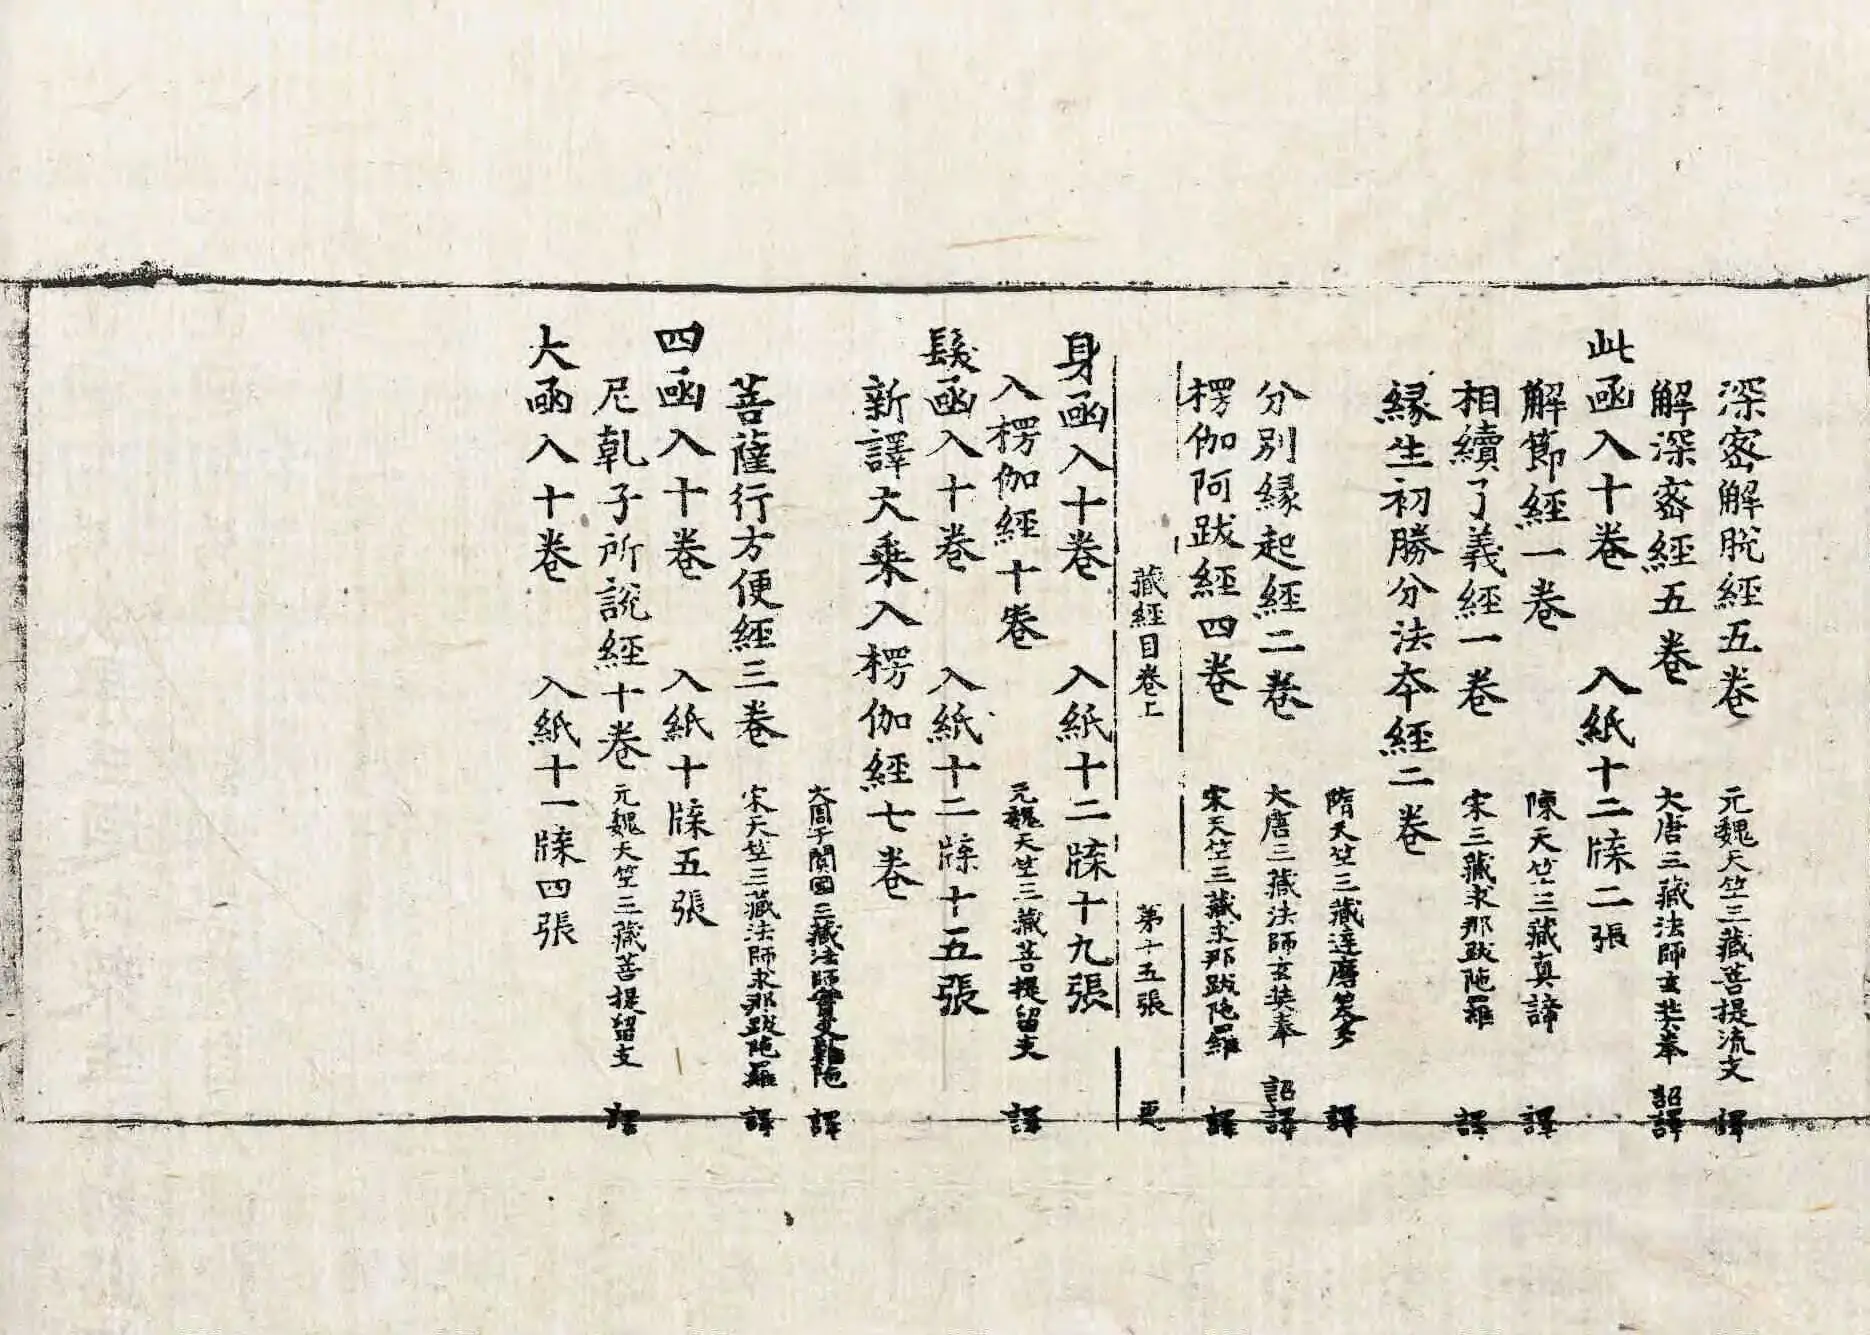 深宻解脫經五卷　元魏天竺三藏菩提流支　譯
解深宻經五卷　大唐三藏法師玄奘奉　詔譯
此函入十卷　入紙十二牒二張
解節經一卷　陳天竺三藏真諦　譯
相續了義經一卷　宋三藏求那跋陁羅　譯
縁生初勝分法夲經二卷
隋天竺三藏達磨笈多　譯
分別縁起經二卷　大唐三藏法師玄奘奉　詔譯
楞伽阿跋經四卷　宋天竺三藏求那跋陁羅　譯
藏經目卷上　第十五張　更
身函入十卷　入紙十二牒十九張
入楞伽經十卷　元魏天竺三藏菩提留支　譯
髮函入十卷　入紙十二牒十五張
新譯大乗入楞伽經七卷
大周于闐國三藏法師實叉難陁　譯
菩薩行方便經三卷　宋天竺三藏法師求那跋陁羅　譯
四函入十卷　入紙十牒五張
尼乹子所説經十卷　元魏天竺三藏菩提留支　譯
大函入十卷　入紙十一牒四張